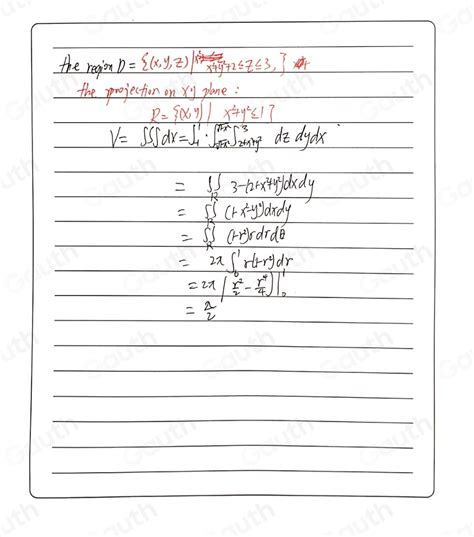 the region D = {(x,y,z) | x²+y²+2≤z≤3, }
the projection on xy plane :
R = {(x,y) | x²+y²≤1}
V = ∭dv = ∫₋₁¹ ∫ ∫³₂₊ₓ²₊ᵧ² dz dydx
= ∬_R 3-(2+x²+y²)dxdy
= ∬_R (1-x²-y²)dxdy
= ∬_R (1-r²)rdrdθ
= 2π ∫₀¹ r(1-r²)dr
= 2π | r²/2 - r⁴/4 ]|₀¹
= π/2
Gauth